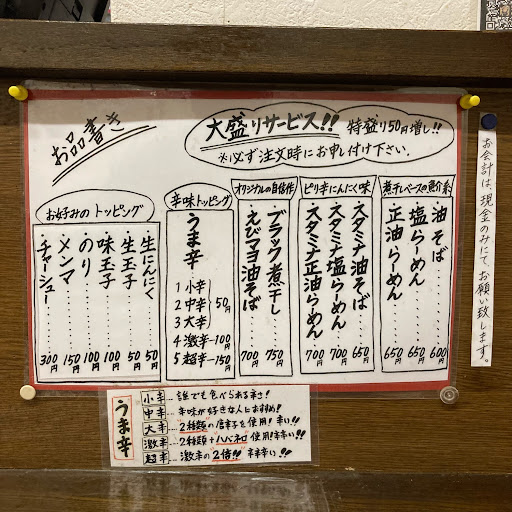 お品書き
大盛りサービス!! 特盛り50円増し!!
※必ず注文時にお申し付け下さい.
煮干しベースの魚介系
油そば……600円
塩らーめん……650円
正油らーめん……650円
ピリ辛にんにく味
スタミナ油そば……650円
スタミナ塩らーめん……700円
スタミナ正油らーめん……700円
オリジナルの自信作
ブラック煮干し……750円
えびマヨ油そば……700円
辛味トッピング
うま辛
1 小辛
2 中辛
3 大辛
50円
4 激辛―100円
5 超辛―150円
お好みのトッピング
生にんにく……50円
生玉子……50円
味玉子……100円
のり……100円
メンマ……150円
チャーシュー……300円
お会計は、現金のみにて、お願い致します。
うま辛
小辛…誰でも食べられる辛さ!
中辛…辛味が好きな人におすすめ!
大辛…2種類の唐辛子を使用!辛い!!
激辛…2種類+ハバネロ使用!辛辛い!!
超辛…激辛の2倍!! 辛辛辛い!!